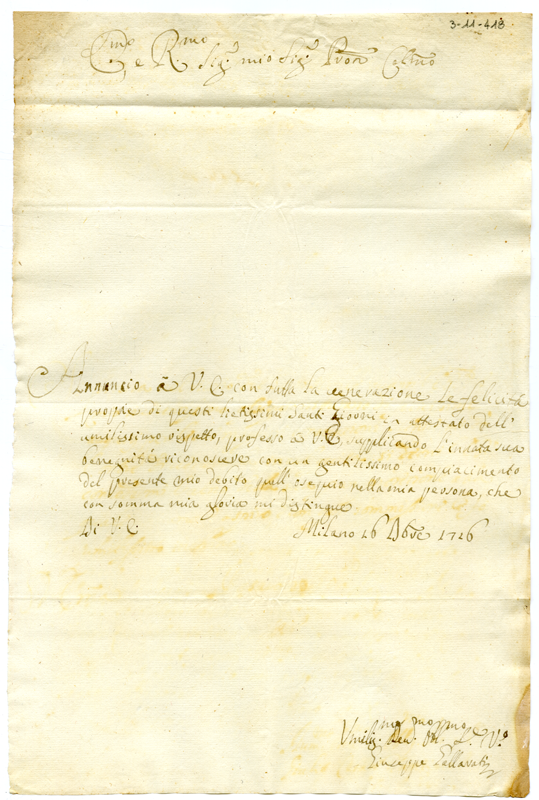 3-11-418
Emo e Rmo Sig.r mio Sig.r Pron Colmo
Annuncio à V. E. con tutta la venerazione le felicità
proprie di questi lietissimi Santi Giorni in attestato dell'
umilissimo rispetto, professo à V. E., supplicando l'innata sua
benignità riconoscere con un gentilissimo compiacimento
del presente mio debito quell'osequio nella mia persona, che
con somma mia gloria mi distingue.
Di V. E.
Milano 16 Xbre 1726
Umiliss. Dev. Obl. S.re V.o
Giuseppe Pallavic